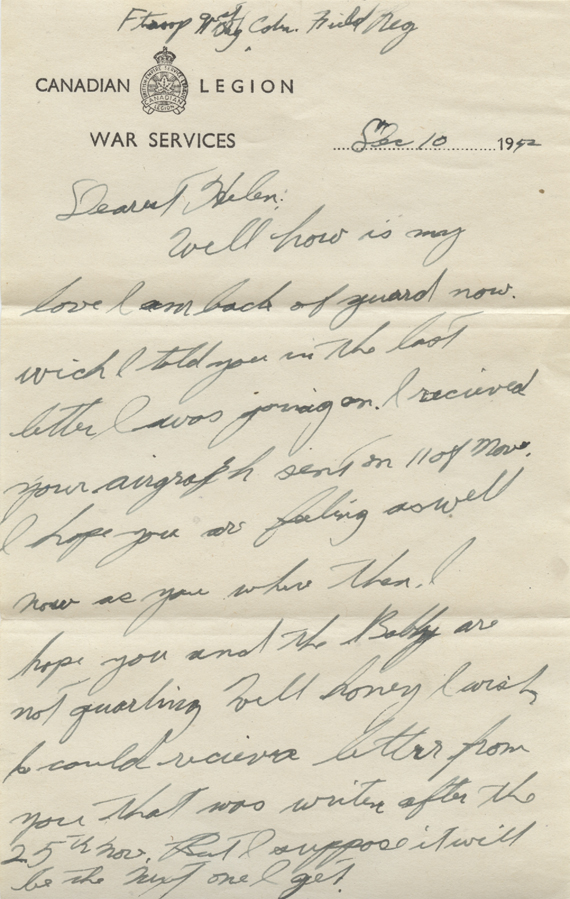 Cdn. Field Reg
CANADIAN LEGION
WAR SERVICES
Dec 10 1942
Dearest Helen:
Well how is my
love I am back of guard now.
wich I told you in the last
letter I was going on. I recieved
your airgraph sent on 11 of Nov.
I hope you are feeling aswell
now as you where then. I
hope you and the Babby are
not quarling Well honey I wish
I could recieve letter from
you that was writen after the
25th Nov. But I suppose it will
be the next one I get.